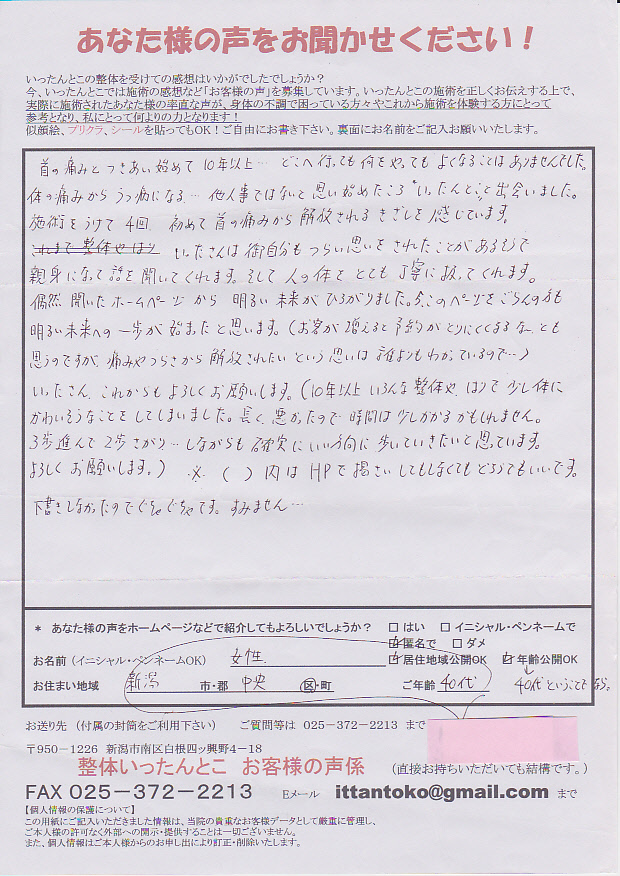 あなた様の声をお聞かせください！
いったんとこの整体を受けての感想はいかがでしたでしょうか？
今、いったんとこでは施術の感想など「お客様の声」を募集しています。いったんとこの施術を正しくお伝えする上で、
実際に施術されたあなた様の率直な声が、身体の不調で困っている方々やこれから施術を体験する方にとって
参考となり、私にとって何よりの力となります！
似顔絵、プリクラ、シールを貼ってもOK！ご自由にお書き下さい。裏面にお名前をご記入お願いいたします。
首の痛みとつきあい始めて10年以上… どこへ行っても何をやってもよくなることはありませんでした。
体の痛みからうつ病になる… 他人事ではないと思い始めたころ"いったんとこ"と出会いました。
施術をうけて4回、初めて首の痛みから解放されるきざしを感じています。
これまで整体やはり いったさんは御自分もつらい思いをされたことがあるそうで
親身になって話を聞いてくれます。そして人の体をとても丁寧に扱ってくれます。
偶然開いたホームページから明るい未来がひろがりました。今このページをごらんの方も
明るい未来への一歩が始まったと思います。(お客が増えると予約がとりにくくなるな、とも
思うのですが、痛みやつらさから解放されたいという思いは誰よりもわかっているので…)
いったさん、これからもよろしくお願いします。(10年以上いろんな整体や、はりで少し体に
かわいそうなことをしてしまいました。長く悪かったので時間は少しかかるかもしれません。
3歩進んで2歩さがり…しながらも確実にいい方向に歩いていきたいと思っています。
よろしくお願いします。) ※( )内はHPで掲さいしてもしなくてもどちらでもいいです。
下書きしなかったのでぐちゃぐちゃです。すみません…
* あなた様の声をホームページなどで紹介してもよろしいでしょうか？ □はい □イニシャル・ペンネームで
☑匿名で □ダメ
お名前（イニシャル・ペンネームOK） 女性 ☑居住地域公開OK ☑年齢公開OK
お住まい地域 新潟 市・郡 中央 区・町 ご年齢 40代 40代ということなら。
お送り先（付属の封筒をご利用下さい） ご質問等は 025－372－2213 まで
〒950－1226 新潟市南区白根四ッ興野4－18
整体いったんとこ お客様の声係 （直接お持ちいただいても結構です。）
FAX 025－372－2213 Eメール ittantoko@gmail.com まで
【個人情報の保護について】
この用紙にご記入いただきました情報は、当院の貴重なお客様データとして厳重に管理し、
ご本人様の許可なく外部への開示・提供することは一切ございません。
また、個人情報はご本人様からのお申し出により訂正・削除いたします。